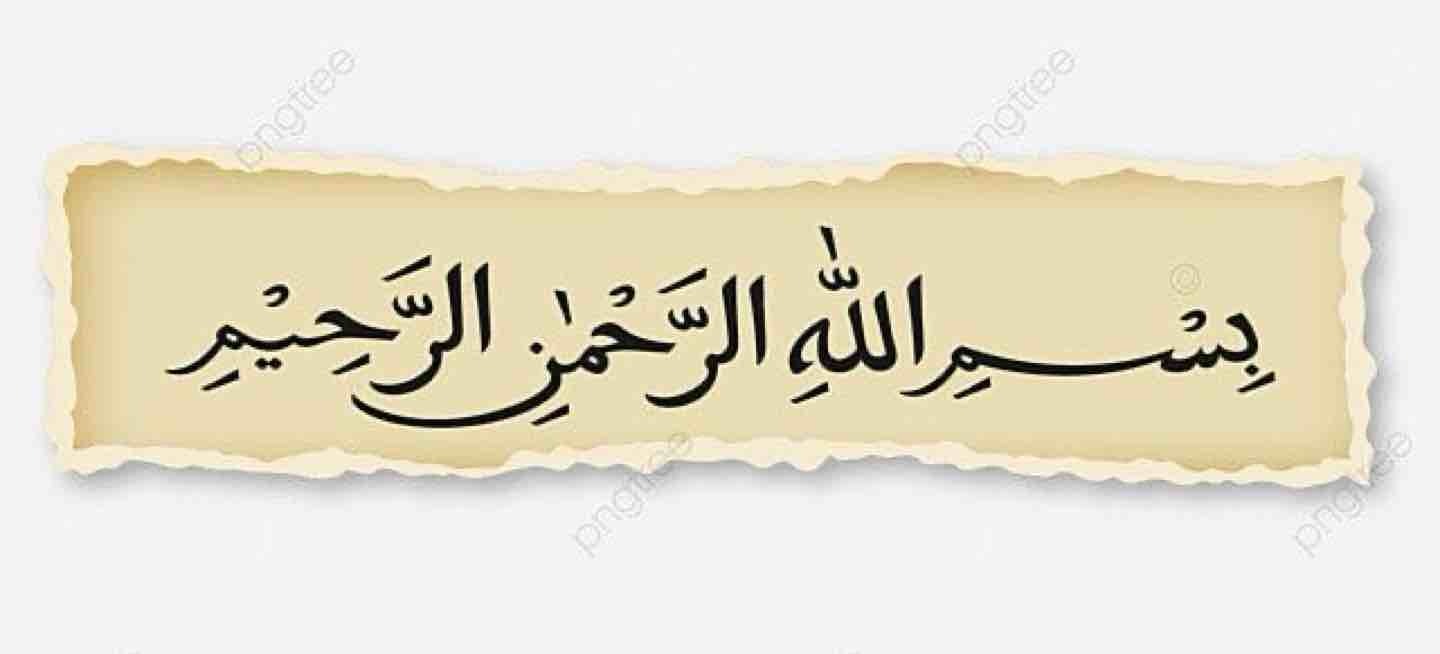 بِسْمِ اللّٰهِ الرَّحْمٰنِ الرَّحِيْمِ
pngtree
pngtree
pngtree
pngtree